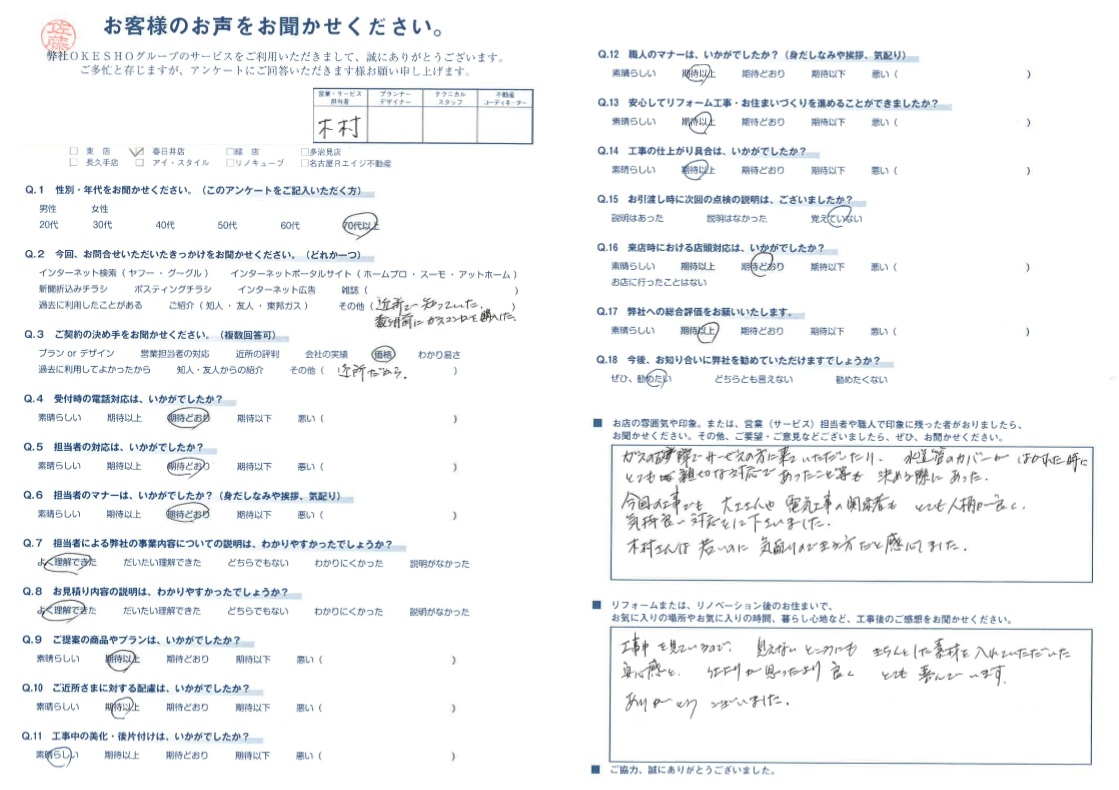 佐藤
お客様のお声をお聞かせください。
弊社OKESHOグループのサービスをご利用いただきまして、誠にありがとうございます。
ご多忙と存じますが、アンケートにご回答いただきます様お願い申し上げます。
営業・サービス担当者 プランナーデザイナー テクニカルスタッフ 不動産コーディネーター
木村
□ 東店 ☑ 春日井店 □緑店 □多治見店
□ 長久手店 □ アイ・スタイル □リノキューブ □名古屋Rエイジ不動産
Q.1 性別・年代をお聞かせください。（このアンケートをご記入いただく方）
男性 女性
20代 30代 40代 50代 60代 70代以上
Q.2 今回、お問合せいただいたきっかけをお聞かせください。（どれか一つ）
インターネット検索（ ヤフー ・ グーグル ） インターネットポータルサイト（ ホームプロ ・ スーモ ・ アットホーム ）
新聞折込みチラシ ポスティングチラシ インターネット広告 雑誌（ ）
過去に利用したことがある ご紹介（ 知人 ・ 友人 ・ 東邦ガス ） その他（ 近所で知っていた。 ）
数ヶ月前にガスコンロを購入した。
Q.3 ご契約の決め手をお聞かせください。（複数回答可）
プラン or デザイン 営業担当者の対応 近所の評判 会社の実績 価格 わかり易さ
過去に利用してよかったから 知人・友人からの紹介 その他（ 近所だから。 ）
Q.4 受付時の電話対応は、いかがでしたか？
素晴らしい 期待以上 期待どおり 期待以下 悪い（ ）
Q.5 担当者の対応は、いかがでしたか？
素晴らしい 期待以上 期待どおり 期待以下 悪い（ ）
Q.6 担当者のマナーは、いかがでしたか？（身だしなみや挨拶、気配り）
素晴らしい 期待以上 期待どおり 期待以下 悪い（ ）
Q.7 担当者による弊社の事業内容についての説明は、わかりやすかったでしょうか？
よく理解できた だいたい理解できた どちらでもない わかりにくかった 説明がなかった
Q.8 お見積り内容の説明は、わかりやすかったでしょうか？
よく理解できた だいたい理解できた どちらでもない わかりにくかった 説明がなかった
Q.9 ご提案の商品やプランは、いかがでしたか？
素晴らしい 期待以上 期待どおり 期待以下 悪い（ ）
Q.10 ご近所さまに対する配慮は、いかがでしたか？
素晴らしい 期待以上 期待どおり 期待以下 悪い（ ）
Q.11 工事中の美化・後片付けは、いかがでしたか？
素晴らしい 期待以上 期待どおり 期待以下 悪い（ ）
Q.12 職人のマナーは、いかがでしたか？（身だしなみや挨拶、気配り）
素晴らしい 期待以上 期待どおり 期待以下 悪い（ ）
Q.13 安心してリフォーム工事・お住まいづくりを進めることができましたか？
素晴らしい 期待以上 期待どおり 期待以下 悪い（ ）
Q.14 工事の仕上がり具合は、いかがでしたか？
素晴らしい 期待以上 期待どおり 期待以下 悪い（ ）
Q.15 お引渡し時に次回の点検の説明は、ございましたか？
説明はあった 説明はなかった 覚えていない
Q.16 来店時における店頭対応は、いかがでしたか？
素晴らしい 期待以上 期待どおり 期待以下 悪い（ ）
お店に行ったことはない
Q.17 弊社への総合評価をお願いいたします。
素晴らしい 期待以上 期待どおり 期待以下 悪い（ ）
Q.18 今後、お知り合いに弊社を勧めていただけますでしょうか？
ぜひ、勧めたい どちらとも言えない 勧めたくない
■ お店の雰囲気や印象。または、営業（サービス）担当者や職人で印象に残った者がおりましたら、
お聞かせください。その他、ご要望・ご意見などございましたら、ぜひ、お聞かせください。
ガスの故障でサービスの方に来ていただいたり、水道管のカバーがはがれた時に
とても親切な対応であったこと等も決める際にあった。
今回の工事でも 大工さんや電気工事の関係者も とても人柄が良く、
気持良い対応をして下さいました。
木村さんは 若いのに 気配りのできる方だと感じました。
■ リフォームまたは、リノベーション後のお住まいで、
お気に入りの場所やお気に入りの時間、暮らし心地など、工事後のご感想をお聞かせください。
工事中を見ているので、見えないところにも きちんとした素材を入れていただいた
安心感と、仕上りが思ったより良く とても喜んでいます。
ありがとうございました。
■ ご協力、誠にありがとうございました。